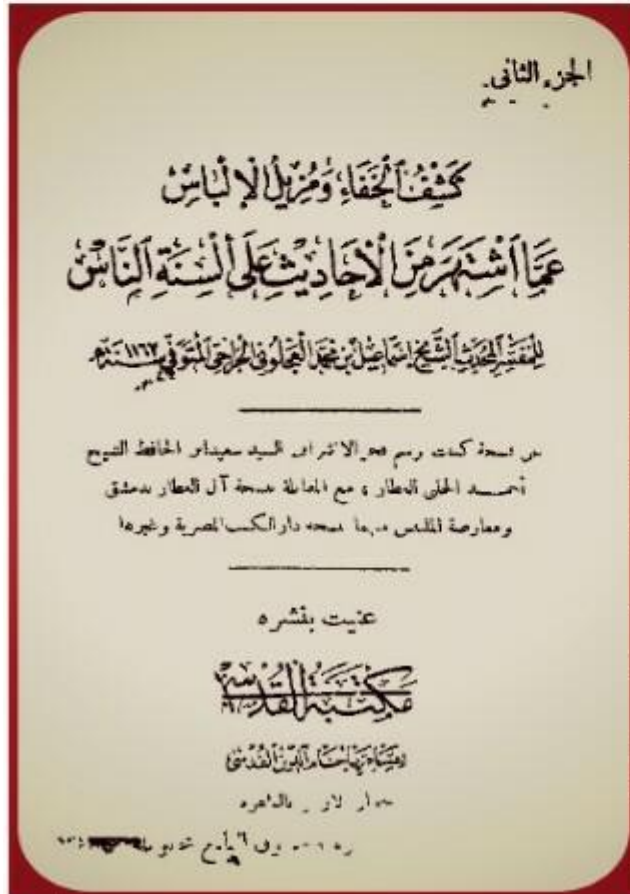 الجزء الثاني
كَشْفُ ٱلْخَفَاءِ وَمُزِيلُ ٱلْإِلْبَاسِ
عَمَّا ٱشْتَهَرَ مِنَ ٱلْأَحَادِيثِ عَلَى أَلْسِنَةِ ٱلنَّاسِ
للمفسر المحدث الشيخ إسماعيل بن محمد العجلوني الجراحي المتوفى سنة ١١٦٢ه
عن نسخة كتبت برسم فخر الاشراف السيد سعيد ابن الحافظ الشيخ
أحمد الحلبي العطار ، مع المقابلة بنسخة آل العطار بدمشق
ومعارضة الملتبس منها بنسخة دار الكتب المصرية وغيرها
عنيت بنشره
مكتبة القدسي
لصاحبها حسام الدين القدسي
بالقاهرة